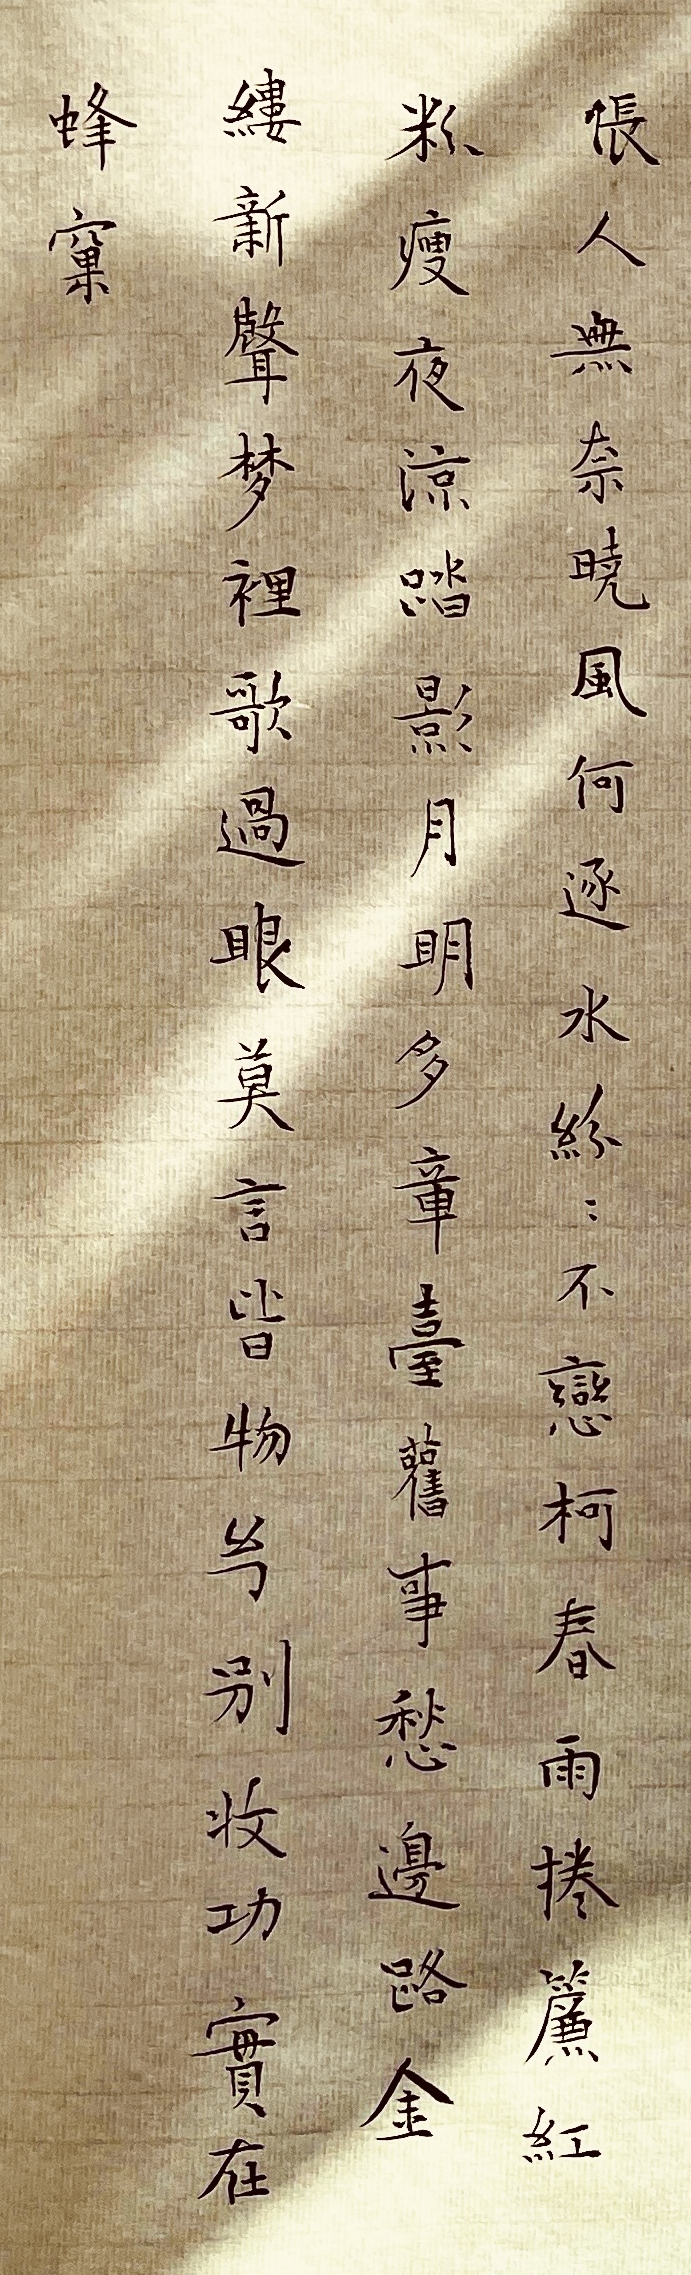 悵人無奈曉風何逐水紛〻不戀柯春雨捲簾紅
粉瘦夜涼踏影月明多章臺舊事愁邊路金
縷新聲梦裡歌過眼莫言皆物幻別收功實在
蜂窠